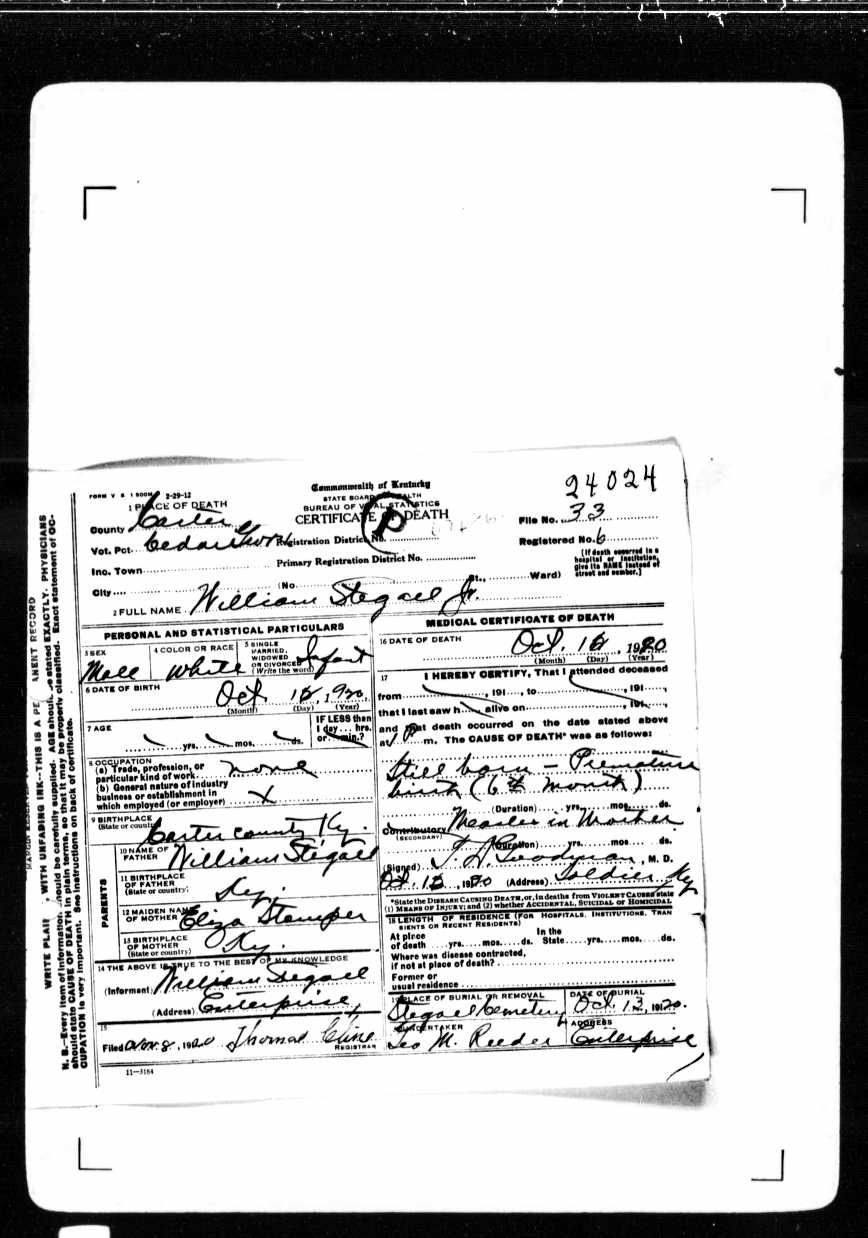 24024
FORM V. S. 1 500M 2-29-12
Commonwealth of Kentucky
STATE BOARD HEALTH
BUREAU OF VITAL STATISTICS
CERTIFICATE DEATH
P
1 PLACE OF DEATH
County Carter
Vot. Pct. Registration District No.
Inc. Town Primary Registration District No.
City (No. St., Ward)
File No. 33
Registered No. 6
[If death occurred in a hospital or institution, give its NAME instead of street and number.]
2 FULL NAME William Stegall Jr.
PERSONAL AND STATISTICAL PARTICULARS
3 SEX Male
4 COLOR OR RACE White
5 SINGLE MARRIED, WIDOWED OR DIVORCED (Write the word) Infant
6 DATE OF BIRTH Oct. 1920.
(Month) (Day) (Year)
7 AGE yrs. mos. ds.
IF LESS than 1 day hrs. or min.?
8 OCCUPATION
(a) Trade, profession, or particular kind of work none
(b) General nature of industry business or establishment in which employed (or employer) X
9 BIRTHPLACE
(State or country) Carter County Ky.
PARENTS
10 NAME OF FATHER William Stegall
11 BIRTHPLACE OF FATHER (State or country) Ky.
12 MAIDEN NAME OF MOTHER Eliza Stamper
13 BIRTHPLACE OF MOTHER (State or country) Ky.
14 THE ABOVE IS TRUE TO THE BEST OF MY KNOWLEDGE
(Informant) William Stegall
(Address) Enterprise
15
Filed Nov. 8, 1920 Thomas Cline
REGISTRAR
11-3184
MEDICAL CERTIFICATE OF DEATH
16 DATE OF DEATH Oct. 1920
(Month) (Day) (Year)
17 I HEREBY CERTIFY, That I attended deceased
from , 191 , to , 191 ,
that I last saw h alive on , 191 ,
and that death occurred on the date stated above
at 1 P m. The CAUSE OF DEATH* was as follows:
Still born - Premature
birth (6th month)
(Duration) yrs. mos. ds.
Contributory Measles in Mother
(SECONDARY)
(Duration) yrs. mos. ds.
(Signed) Goodman, M. D.
Oct. 1920 (Address) Soldier, Ky
*State the DISEASE CAUSING DEATH, or, in deaths from VIOLENT CAUSES state (1) MEANS OF INJURY; and (2) whether ACCIDENTAL, SUICIDAL or HOMICIDAL
18 LENGTH OF RESIDENCE (FOR HOSPITALS, INSTITUTIONS, TRANSIENTS OR RECENT RESIDENTS)
At place of death yrs. mos. ds. In the State yrs. mos. ds.
Where was disease contracted, if not at place of death?
Former or usual residence
19 PLACE OF BURIAL OR REMOVAL Stegall Cemetery
DATE OF BURIAL Oct. 13, 1920.
UNDERTAKER Geo M. Reeder
ADDRESS Enterprise
WITH UNFADING INK--THIS IS A PERMANENT RECORD
N. B.--Every item of information should be carefully supplied. AGE should be stated EXACTLY. PHYSICIANS
should state CAUSE OF DEATH in plain terms, so that it may be properly classified. Exact statement of OC-
CUPATION is very important. See instructions on back of certificate.